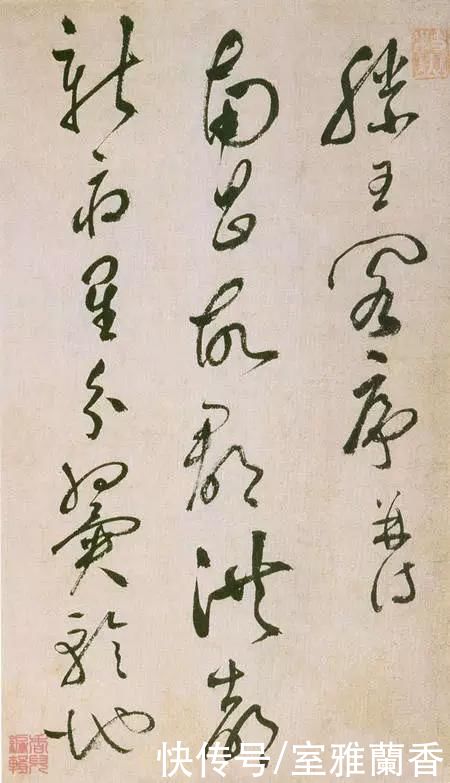 滕王閣序并詩
南昌故郡洪都
新府星分翼軫地
快传号/室雅蘭香